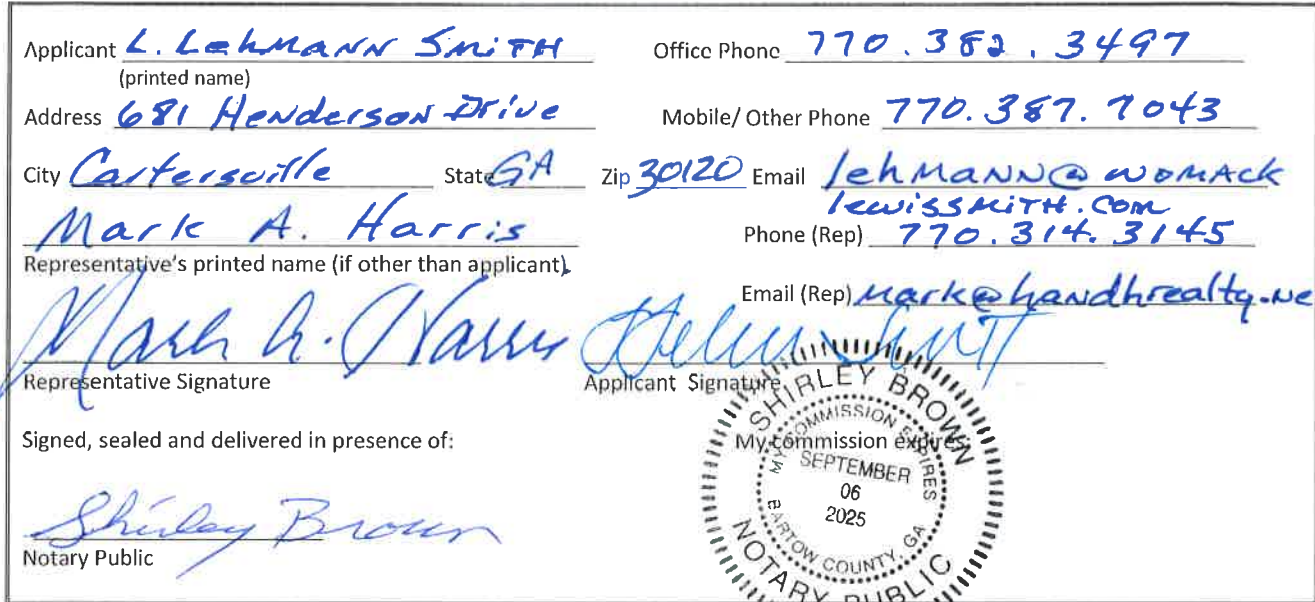 Applicant L. Lehmann Smith Office Phone 770.382.3497
(printed name)
Address 681 Henderson Drive Mobile/ Other Phone 770.387.7043
City Cartersville State GA Zip 30120 Email lehmann@womack
lewissmith.com
Mark A. Harris Phone (Rep) 770.314.3145
Representative's printed name (if other than applicant)
Email (Rep) mark@handhrealty.ne
Mark A. Harris
Representative Signature Applicant Signature
Signed, sealed and delivered in presence of: My commission expires:
Shirley Brown
Notary Public
SHIRLEY BROWN
MY COMMISSION EXPIRES
SEPTEMBER
06
2025
BARTOW COUNTY, GA
NOTARY PUBLIC